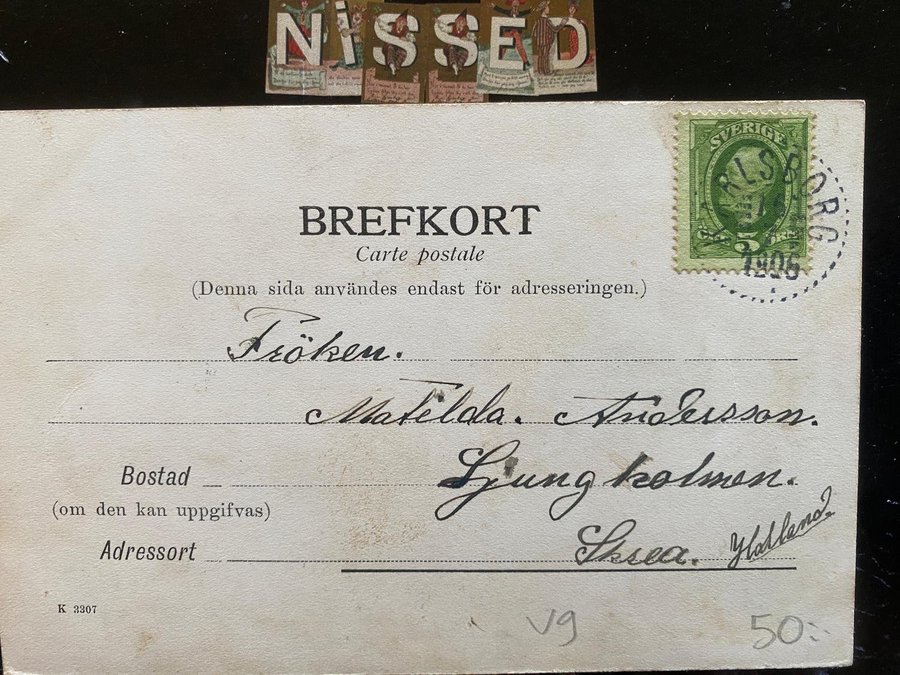 NISSED
SVERIGE
5 ÖRE
KARLSBORG
1906
BREFKORT
Carte postale
(Denna sida användes endast för adresseringen.)
Fröken.
Matilda. Andersson.
Bostad
Ljungholmen.
(om den kan uppgifvas)
Skrea. Halland.
Adressort
K 3307
V9
50:-